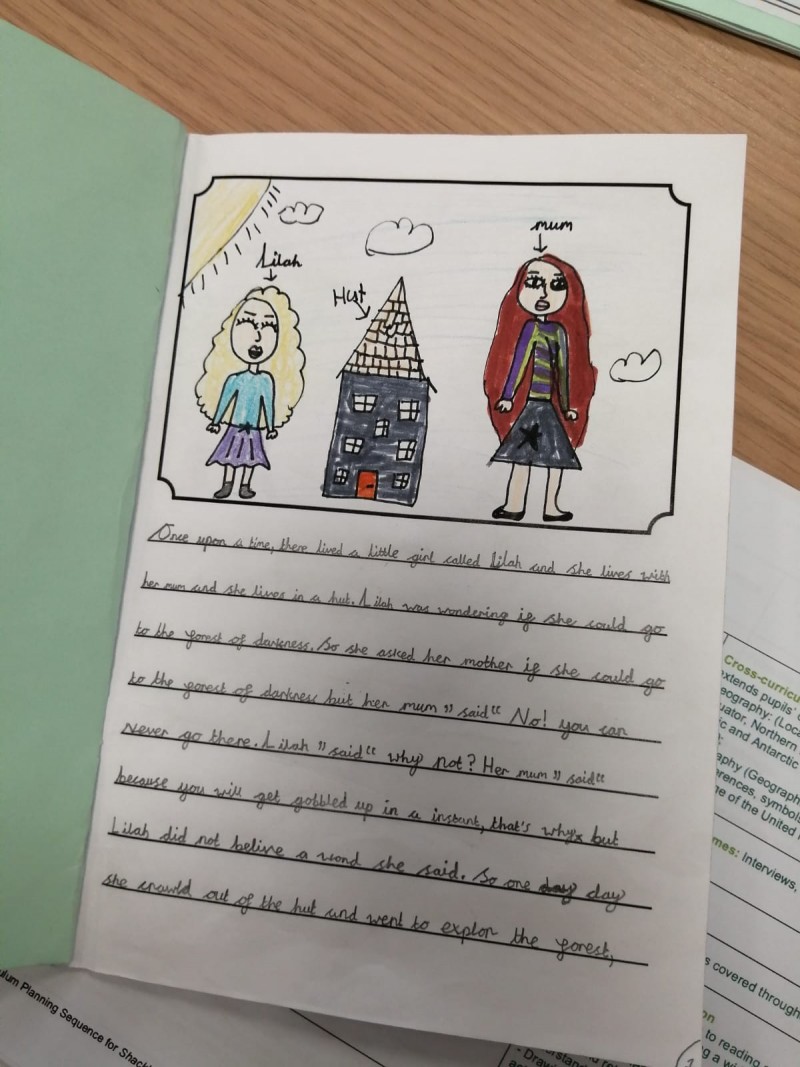 mum
Lilah
Hut
Once upon a time, there lived a little girl called Lilah and she lives with
her mum and she lives in a hut. Lilah was wondering if she could go
to the forest of darkness. So she asked her mother if she could go
to the forest of darkness but her mum " said " No! you can
never go there. Lilah " said " why not? Her mum " said "
because you will get gobbled up in a instant, that's why, but
Lilah did not belive a word she said. So one day
she crawld out of the hut and went to explor the forest,
Cross-curricu
extends pupils'
eography: (Loca
uator, Northern
ic and Antarctic
aphy (Geograph
erences, symbols
ne of the United
mes: Interviews,
s covered through
on
to reading
g a wi
- Draw
ulum Planning Sequence for Shack